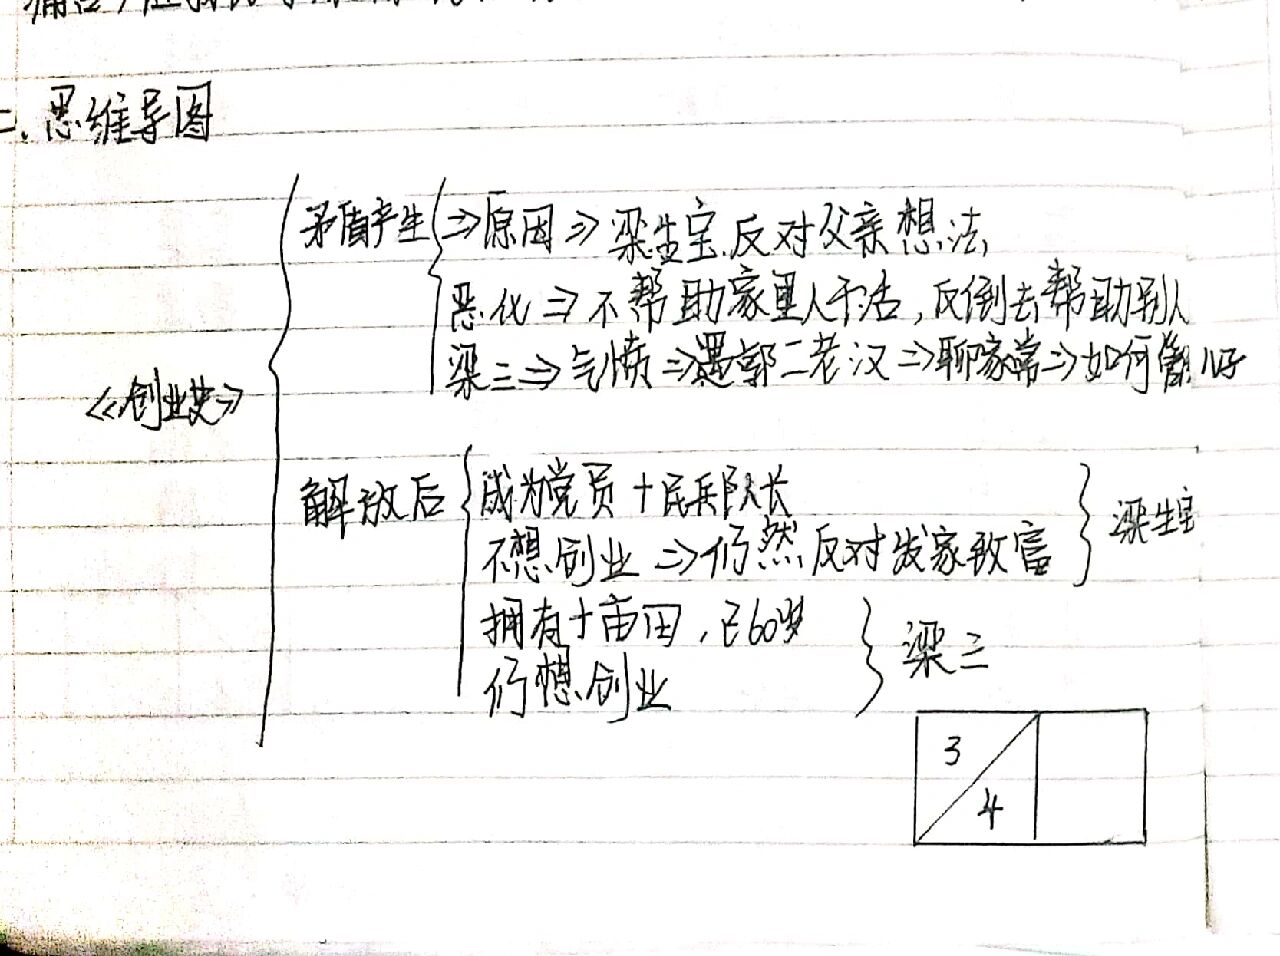 二.思维导图
矛盾产生 ⇒原因⇒梁生宝反对父亲想法
恶化⇒不帮助家里人干活,反倒去帮助别人
梁三⇒气愤⇒遇郭二老汉⇒聊家常⇒如何儿子
《创业史》
解放后 成为党员+民兵队长
不想创业⇒仍然反对发家致富 梁生宝
拥有十亩田,已60岁
仍想创业 梁三
3
4